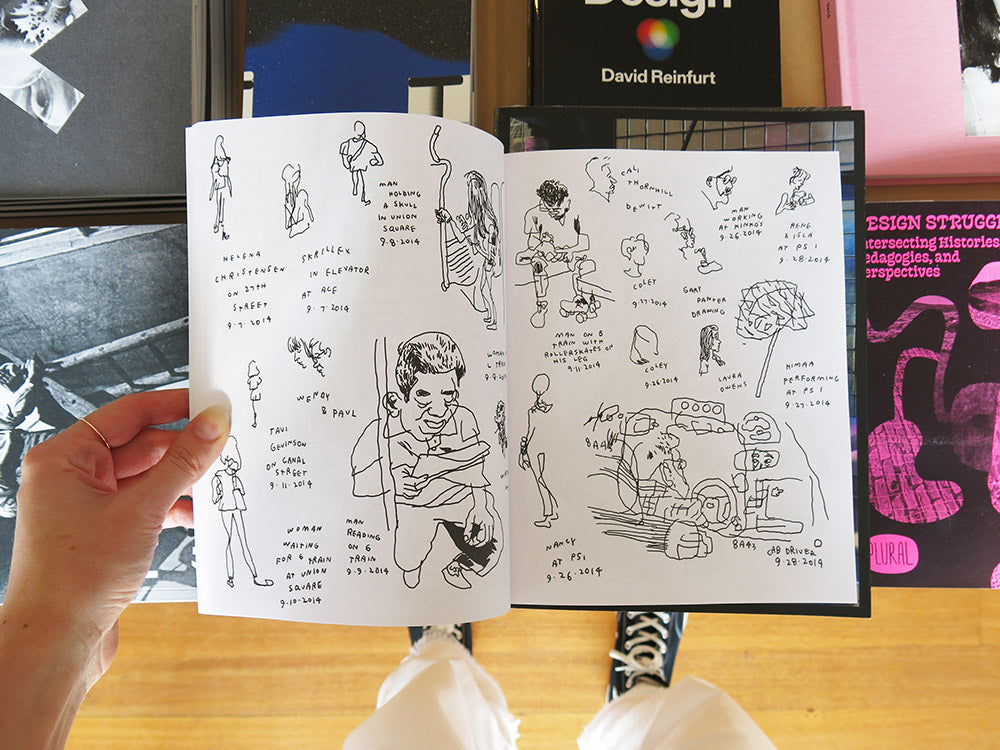 Design
David Reinfurt
MAN
HOLDING
A SKULL
IN UNION
SQUARE
9.8.2014
HELENA
CHRISTENSEN
ON 27TH
STREET
9.7.2014
SKRILLEX
IN ELEVATOR
AT ACE
9.7.2014
WENDY
& PAUL
TAVI
GEVINSON
ON CANAL
STREET
9.11.2014
WOMAN
WAITING
FOR 6 TRAIN
AT UNION
SQUARE
9.10.2014
MAN
READING
ON 6
TRAIN
9.9.2014
CALI
THORNHILL
DEWITT
MAN
WORKING
AT KINKO'S
9.26.2014
RENE
AT PS 1
9.28.2014
COLEY
9.27.2014
GARY
PANTER
DRAWING
MAN ON B
TRAIN WITH
ROLLERSKATES ON
HIS LEG
9.11.2014
COLEY
9.26.2014
LAURA
OWENS
HIMAA
PERFORMING
AT PS 1
9.27.2014
NANCY
AT PS1
9.26.2014
8A43
CAB DRIVER
9.28.2014
DESIGN STRUGG
ntersecting Histories,
edagogies, and
erspectives
PLURAL